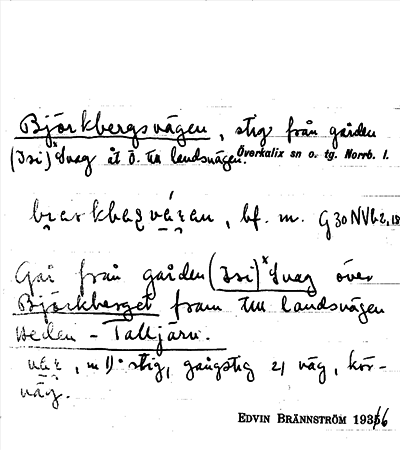 Björkbergsvägen, stig från gården
(Isi) Svag åt Ö. till landsvägen. Överkalix sn o. tg. Norrb. l.
bf. m. G30NVb2,18
Går från gården (Isi) x Svag över
Björkberget fram till landsvägen
Heden – Talljärv.
m 1) stig, gångstig 2) väg, kör-
väg.
EDVIN BRÄNNSTRÖM 1936